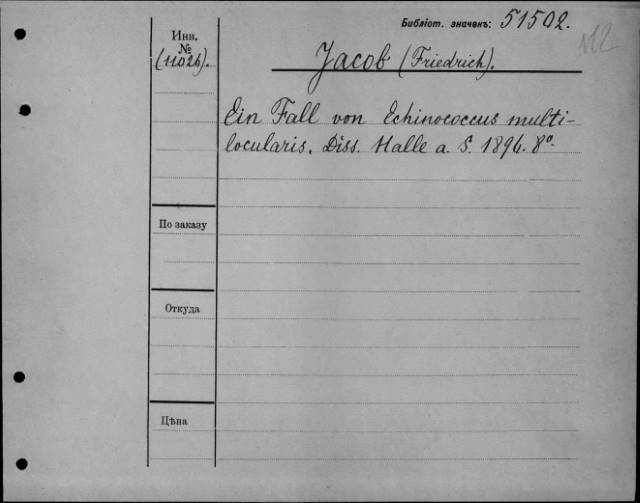 Библіот. значекъ: 51502.
Инв.
№
(11026).
Jacob (Friedrich).
Ein Fall von Echinococcus multi-
locularis. Diss. Halle a. S. 1896. 8°.
По заказу
Откуда
Цѣна